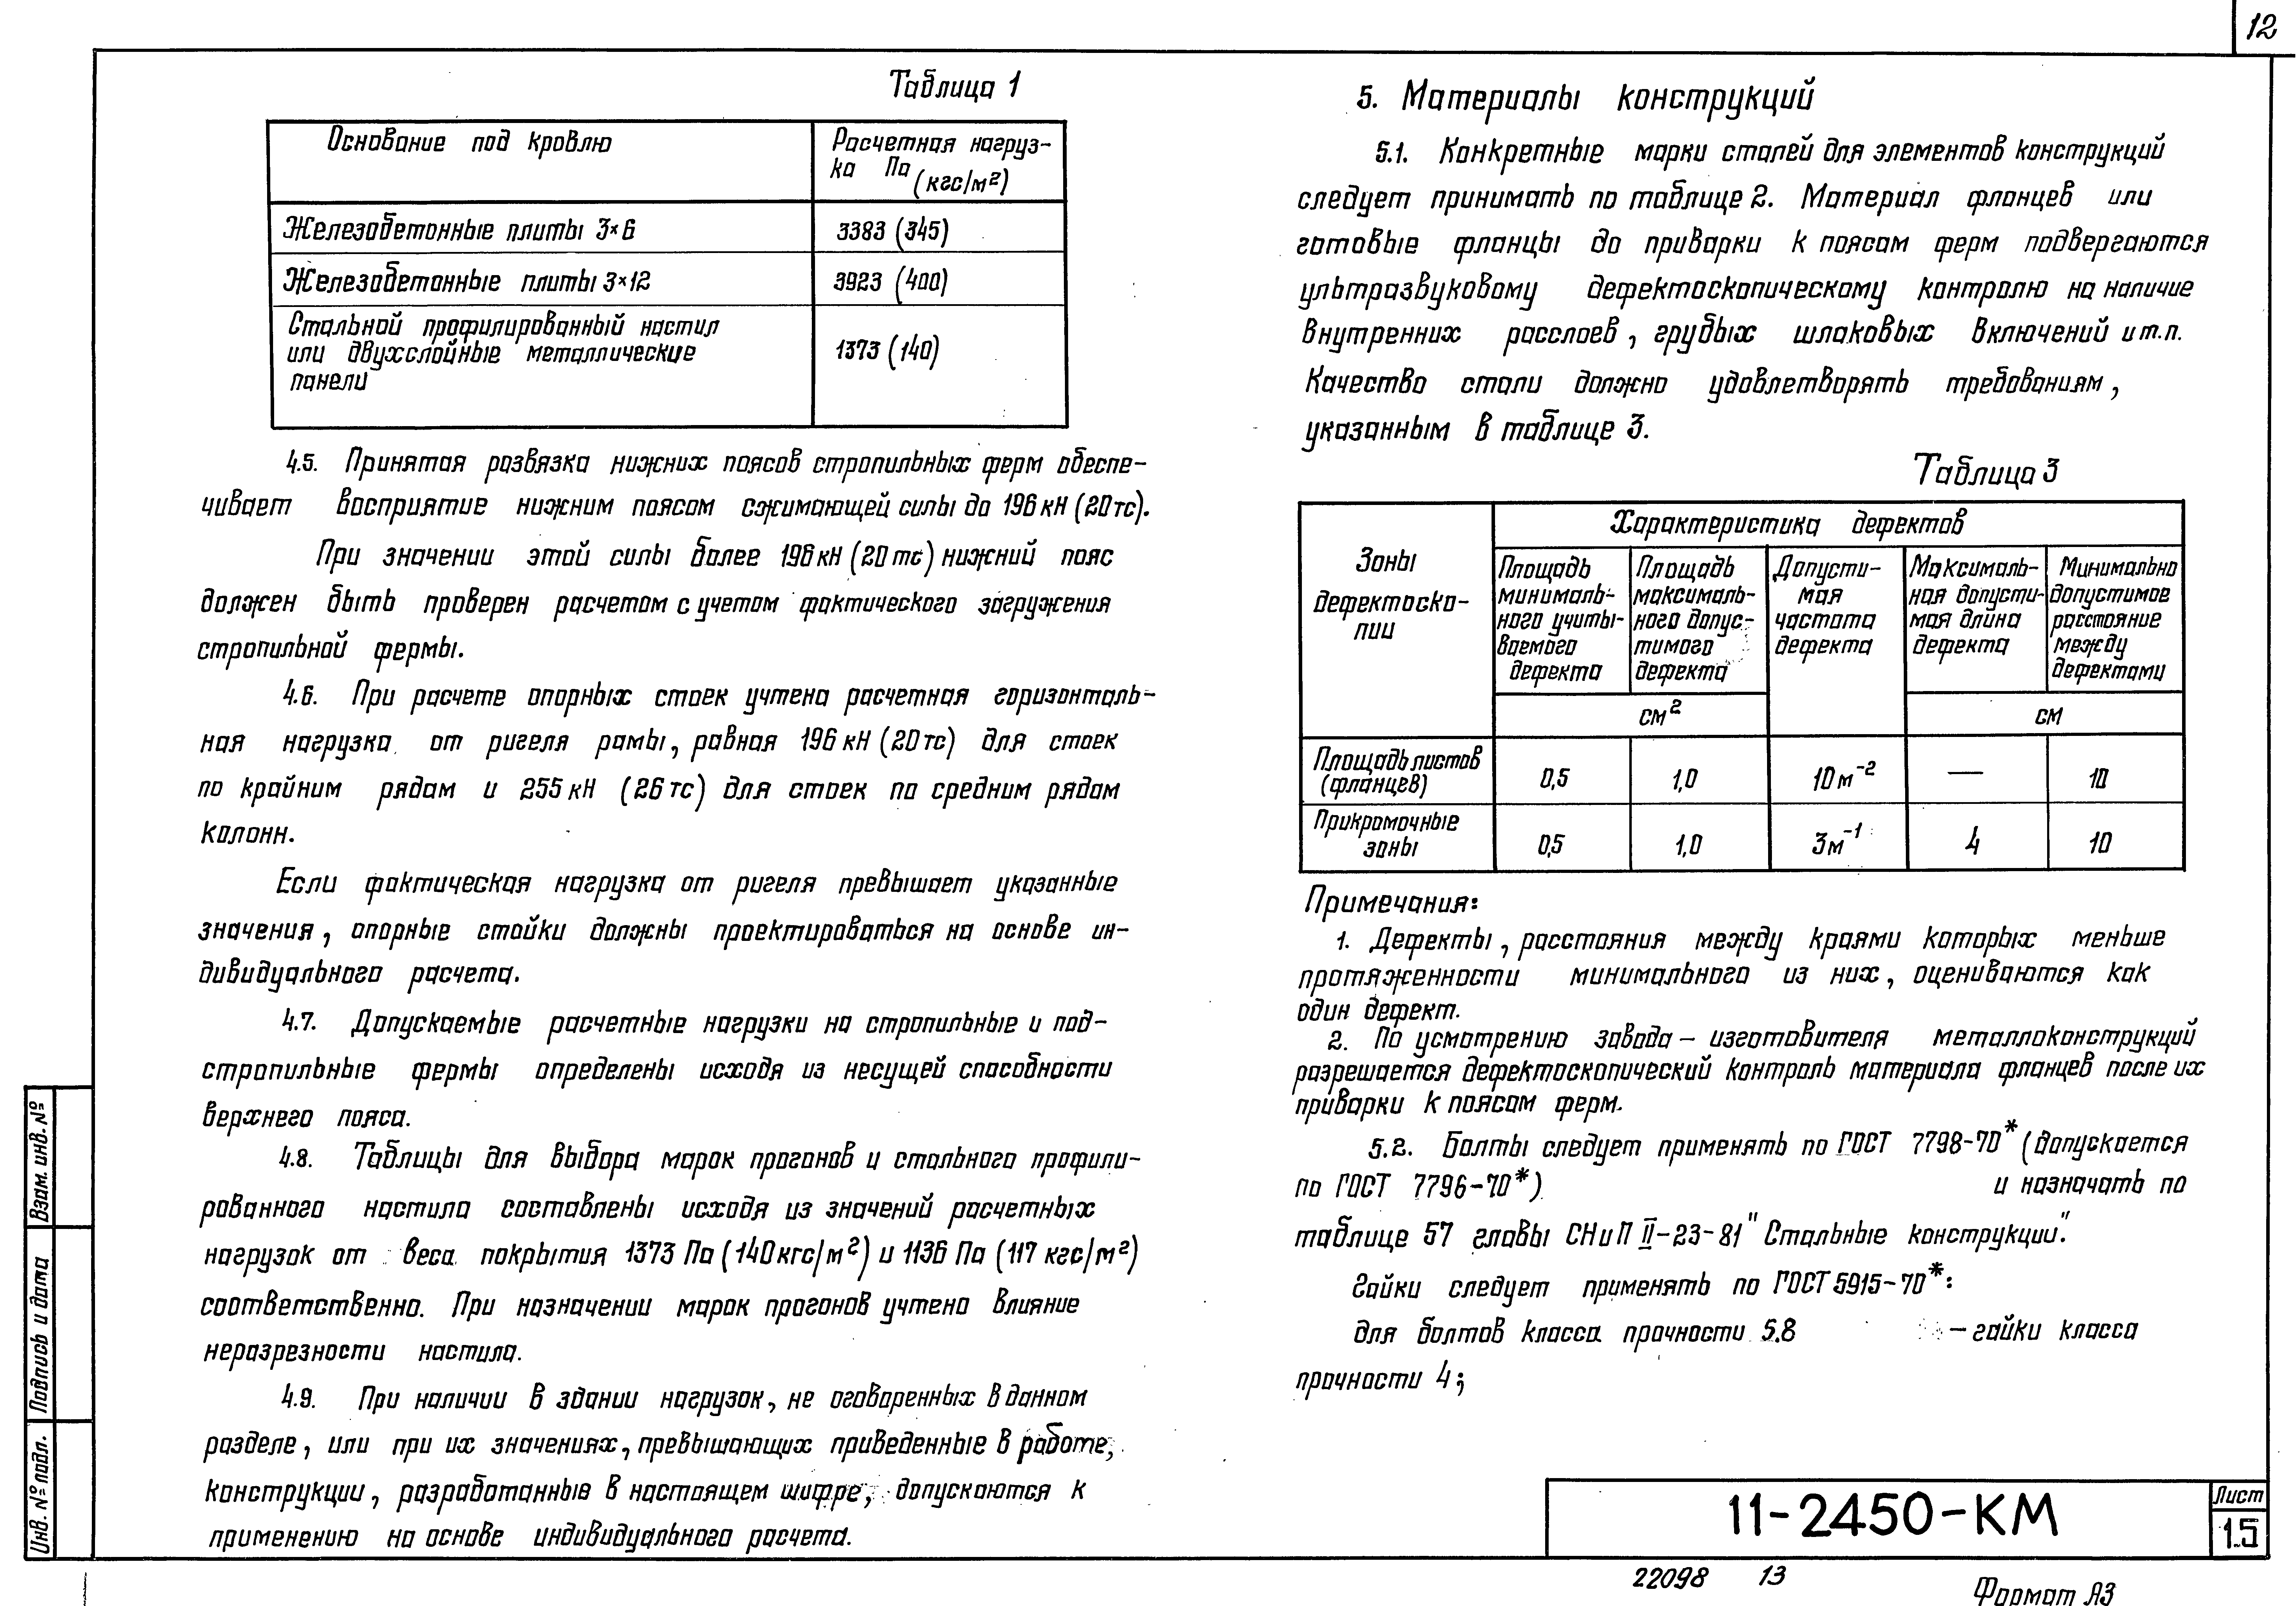 12
Таблица 1
Основание под кровлю
Расчетная нагруз-
ка Па (кгс/м²)
Железобетонные плиты 3×6
3383 (345)
Железобетонные плиты 3×12
3923 (400)
Стальной профилированный настил
или двухслойные металлические
панели
1373 (140)
4.5. Принятая развязка нижних поясов стропильных ферм обеспе-
чивает восприятие нижним поясом сжимающей силы до 196 кН (20 тс).
При значении этой силы более 196 кН (20 тс) нижний пояс
должен быть проверен расчетом с учетом фактического загружения
стропильной фермы.
4.6. При расчете опорных стоек учтена расчетная горизонталь-
ная нагрузка от ригеля рамы, равная 196 кН (20 тс) для стоек
по крайним рядам и 255 кН (26 тс) для стоек по средним рядам
колонн.
Если фактическая нагрузка от ригеля превышает указанные
значения, опорные стойки должны проектироваться на основе ин-
дивидуального расчета.
4.7. Допускаемые расчетные нагрузки на стропильные и под-
стропильные фермы определены исходя из несущей способности
верхнего пояса.
4.8. Таблицы для выбора марок прогонов и стального профили-
рованного настила составлены исходя из значений расчетных
нагрузок от веса покрытия 1373 Па (140 кгс/м²) и 1136 Па (117 кгс/м²)
соответственно. При назначении марок прогонов учтено влияние
неразрезности настила.
4.9. При наличии в здании нагрузок, не оговоренных в данном
разделе, или при их значениях, превышающих приведенные в работе,
конструкции, разработанные в настоящем шифре, допускаются к
применению на основе индивидуального расчета.
5. Материалы конструкций
5.1. Конкретные марки сталей для элементов конструкций
следует принимать по таблице 2. Материал фланцев или
готовые фланцы до приварки к поясам ферм подвергаются
ультразвуковому дефектоскопическому контролю на наличие
внутренних расслоев, грубых шлаковых включений и т.п.
Качество стали должно удовлетворять требованиям,
указанным в таблице 3.
Таблица 3
Зоны
дефектоско-
пии
Характеристика дефектов
Площадь
минималь-
ного учиты-
ваемого
дефекта
Площадь
максималь-
ного допус-
тимого
дефекта
Допусти-
мая
частота
дефекта
Максималь-
ная допусти-
мая длина
дефекта
Минимально
допустимое
расстояние
между
дефектами
см²
см
Площадь листов
(фланцев)
0,5
1,0
10 м⁻²
—
10
Прикромочные
зоны
0,5
1,0
3 м⁻¹
4
10
Примечания:
1. Дефекты, расстояния между краями которых меньше
протяженности минимального из них, оцениваются как
один дефект.
2. По усмотрению завода – изготовителя металлоконструкций
разрешается дефектоскопический контроль материала фланцев после их
приварки к поясам ферм.
5.2. Болты следует применять по ГОСТ 7798-70* (допускается
по ГОСТ 7796-70*) и назначать по
таблице 57 главы СНиП II-23-81 "Стальные конструкции".
Гайки следует применять по ГОСТ 5915-70*:
для болтов класса прочности 5.8 – гайки класса
прочности 4;
Взам. инв. №
Подпись и дата
Инв. № подл.
11-2450-КМ
Лист
1.5
22098 13
Формат А3